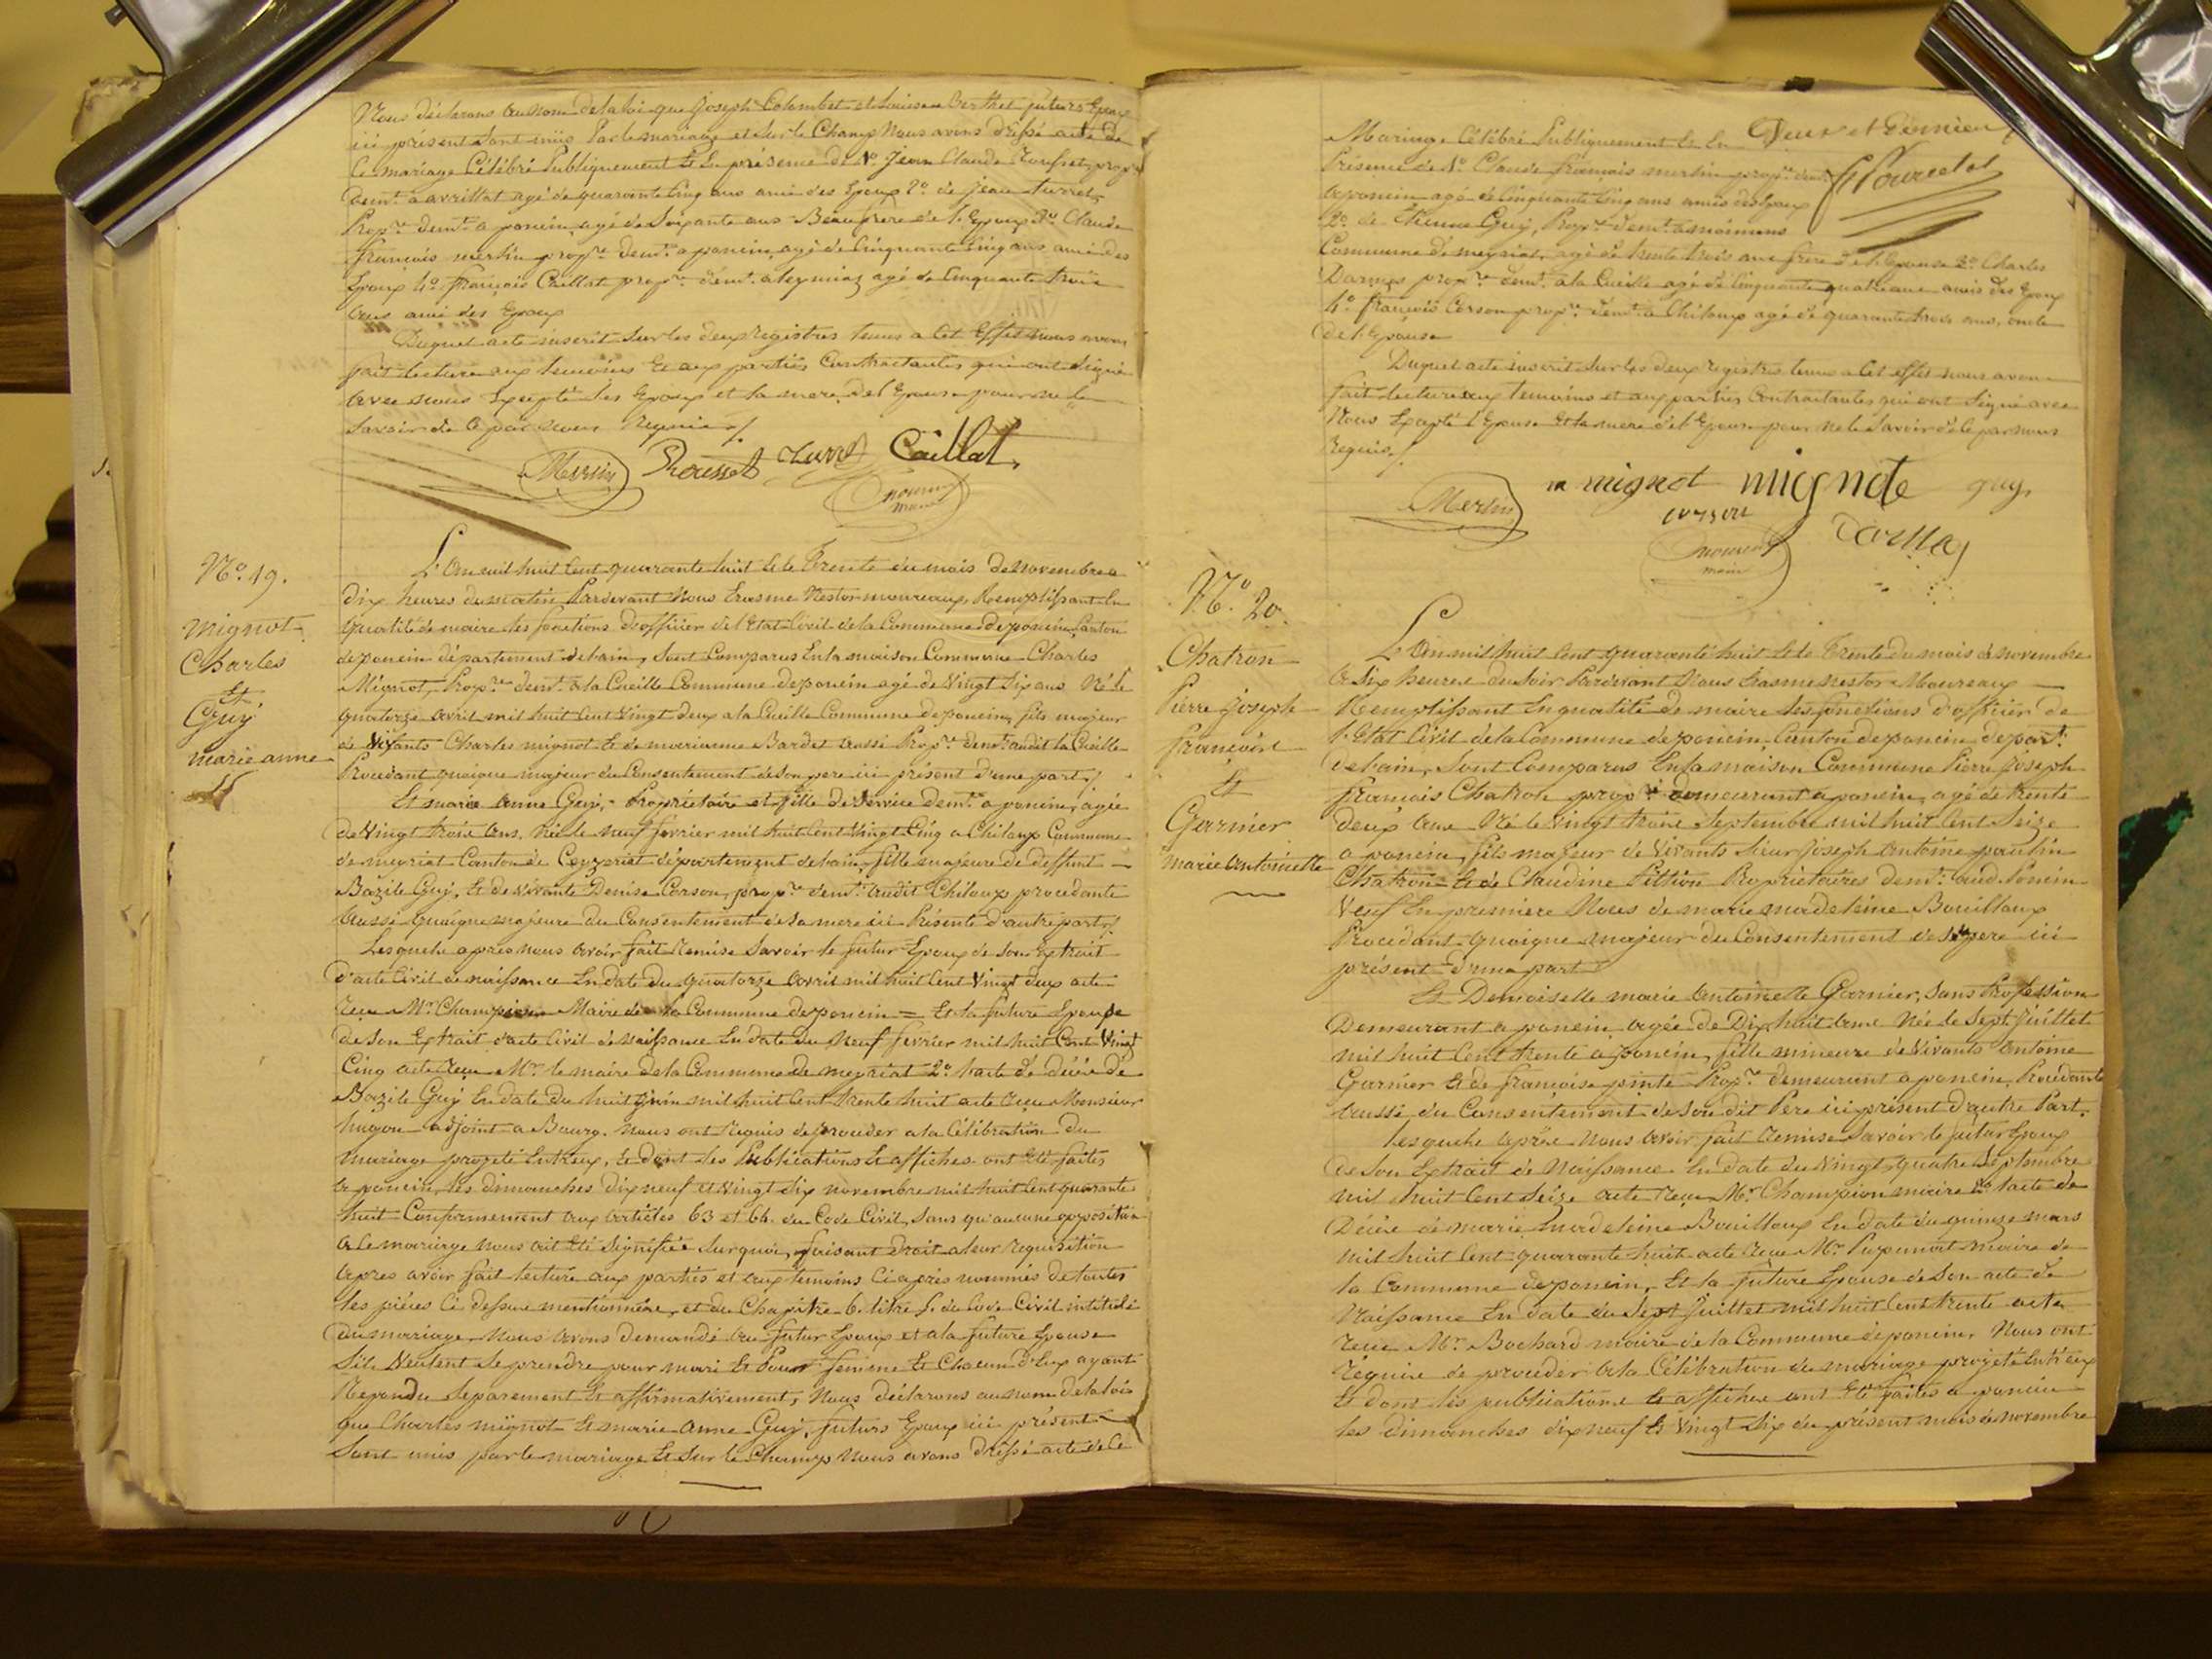 Nous déclarons au nom de la loi que Joseph Colombet et Louise Berthet futurs Epoux
ici présent sont unis Par le mariage et sur le Champ Nous avons dréssé acte de
Ce mariage Célébré Publiquement Et En présence de 1º. Jean Claude Rousset, propre
demt. a avrillat agé de quarante Cinq ans ami des Epoux 2º de Jean Turrel,
Propre demt. a poncin, agé de Soixante ans Beaufrere de l'Epoux 3º. Claude
françois merlin propre demt. a poncin, agé de Cinquante Cinq ans ami des
Epoux 4º. françois Caillat propre demt. a leymiaz agé de Cinquante trois
ans ami des Epoux
Duquel acte inscrit sur les deux registres tenus a Cet Effet nous avons
fait lecture aux temoins Et aux parties Contractantes qui ont signé
avec nous Excepté les Epoux et la mere de l'Epouse pour ne le
savoir de Ce par nous Requis ./.
Merlin Rousset Turrel Caillat
moureaux
maire
Nº. 19.
mignot
Charles
Et
Guy
marie anne
L'An mil huit Cent quarante huit Et le Trente du mois de Novembre a
dix heures du matin Pardevant Nous Erasme Nestor moureaux, Remplissant En
Qualité de maire les fonctions d'officier de l'Etat Civil de la Commune de poncin, Canton
de poncin département de l'ain, Sont Comparus En la maison Commune Charles
Mignot, Propre demt. a la Cueille Commune de poncin agé de Vingt Six ans Né le
quatorze avril mil huit Cent Vingt deux a la Cueille Commune de poncin, fils majeur
de Vivants Charles mignot Et de marianne Bardet aussi Propre demt. audit la Cueille
Procedant quoique majeur du Consentement de Son pere ici présent d'une part ./
Et marie Anne Guy, Propriétaire et fille de Service demt. a poncin, agée
de Vingt trois ans. Née le neuf fevrier mil huit Cent Vingt Cinq a Chiloup Commune
de meyriat Canton de Ceyzeriat département de l'ain, fille majeure de deffunt
Bazile Guy, Et de Vivante Denise Corson, propre demt. audit Chiloup procedante
aussi quoique majeure du Consentement de sa mere ici Présente d'autre part ./
Lesquels après nous avoir fait Remise Savoir le futur Epoux de son Extrait
d'acte Civil de naissance En date du quatorze avril mil huit Cent Vingt deux acte
reçu Mr. Champion Maire de la Commune de poncin = Et la future Epouse
de Son Extrait d'acte Civil de Naissance En date du Neuf fevrier mil huit Cent Vingt
Cinq acte reçu Mr. le maire de la Commune de meyriat 2º. l'acte de décès de
Bazile Guy En date du huit juin mil huit Cent trente huit acte reçu Monsieur
hugon adjoint a Bourg. Nous ont requis de proceder a la Célébration du
mariage projeté Entreux, Et dont les Publications Et affiches ont Eté faites
a poncin, les dimanches dix neuf et Vingt Six novembre mil huit Cent quarante
huit Conformement aux articles 63 et 64. du Code Civil, Sans qu'aucune opposition
a Ce mariage nous ait Eté Signifiée Sur quoi, faisant droit a leur requisition
apres avoir fait lecture aux parties et aux temoins Ci après nommés de toutes
les piéces Ci dessus mentionnées, et du Chapitre 6. titre 5. du Code Civil intitulé
du mariage Nous avons demandé au futur Epoux et a la future Epouse
S'ils Veulent Se prendre pour mari Et Pour femme Et Chacun d'Eux ayant
Repondu Separement Et affirmativement, Nous déclarons au nom de la loi
que Charles mignot Et marie Anne Guy, futurs Epoux ici présents
Sont unis par le mariage Et Sur le Champ Nous avons dréssé acte de Ce
Mariage Célébré Publiquement Et En
Deux et Dernier
Présence de 1º. Claude françois merlin propre demt.
a poncin agé de Cinquante Cinq ans amis des Epoux
2º. de Etienne Guy, Propre demt.
Commune de meyriat, agé de trente trois ans frere de l'Epouse 3º. Charles
Darmes propre demt. a la Cueille agé de Cinquante quatre ans amis des Epoux
4º. françois Corson propre demt. a Chiloup agé de quarante trois ans, oncle
de l'Epouse
Duquel acte inscrit Sur les deux registres tenus a Cet effet nous avons
fait lecture aux temoins et aux parties Contractantes qui ont Signé avec
Nous Excepté l'Epouse Et la mere de l'Epouse pour ne le Savoir de Ce par nous
Requis ./.
Merlin m mignot mignot guy
corson
moureaux
maire
Nº. 20.
Chatron
Pierre Joseph
françois
Et
Garnier
Marie Antoinette
L'An mil huit Cent quarante huit Et le Trente du mois de novembre
a Six heures du Soir Pardevant Nous Erasme Nestor Moureaux
Remplissant En qualité de maire les fonctions d'officier de
l'Etat Civil de la Commune de poncin, Canton de poncin départ.
de l'ain, Sont Comparus En la maison Commune Pierre Joseph
françois Chatron propre demeurant a poncin, agé de trente
deux ans Né le Vingt trois Septembre mil huit Cent Seize
a poncin, fils majeur de Vivants Sieur Joseph Antoine paulin
Chatron Et de Claudine Pittion Propriétaires demt. aud. Poncin
Veuf En premiere Noces de marie madeleine Bouilloux
Procedant quoique majeur du Consentement de Son pere ici
présent d'une part
Et Demoiselle marie antoinette Garnier, Sans Profession
Demeurant a poncin agée de Dix huit ans Née le Sept Juillet
mil huit Cent trente a poncin, fille mineure de Vivants Antoine
Garnier Et de françoise pinte Propre demeurant a poncin, Procedante
aussi du Consentement de Son dit Pere ici présent d'autre Part.
Lesquels après Nous avoir fait remise Savoir le futur Epoux
de Son Extrait de Naissance En date du Vingt quatre Septembre
mil huit Cent Seize acte reçu Mr. Champion maire 2º. l'acte de
Décès de marie madeleine Bouilloux En date du quinze mars
mil huit Cent quarante huit acte reçu Mr. maire de
la Commune de poncin, Et la future Epouse de Son acte de
Naissance En date du Sept Juillet mil huit Cent trente acte
reçu Mr. Bochard maire de la Commune de poncin, Nous ont
Réquis de proceder a la Célébration du mariage projeté Entr'eux
Et dont les publications Et affiches ont Eté faites a poncin
les dimanches dix neuf Et Vingt Six du présent mois de novembre